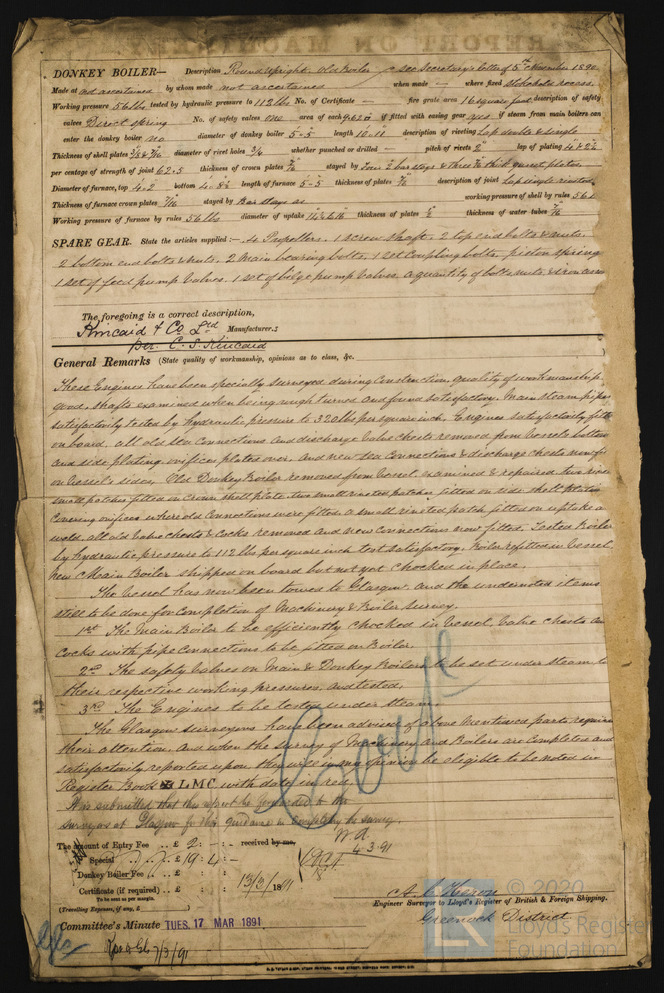 REPORT ON MACHINERY
DONKEY BOILER— Description Round upright, old Boiler see Secretary's letter of 5th November 1890
Made at not ascertained by whom made not ascertained when made — where fixed stokehold recess
Working pressure 56 lbs tested by hydraulic pressure to 112 lbs No. of Certificate — fire grate area 16 square feet description of safety
valves Direct spring No. of safety valves one area of each 9.620 if fitted with easing gear yes if steam from main boilers can
enter the donkey boiler no diameter of donkey boiler 5-5 length 10-11 description of riveting Lap double & single
Thickness of shell plates diameter of rivet holes 3/4 whether punched or drilled — pitch of rivets 2" lap of plating 4 & 2½
per centage of strength of joint 62.5 thickness of crown plates 7/16 stayed by Four 2" bar stays & three 7/16 thick gusset plates
Diameter of furnace, top 4.2 bottom 4.8½ length of furnace 5-5 thickness of plates 7/16 description of joint Lap single riveted
Thickness of furnace crown plates 7/16 stayed by Bar stays as working pressure of shell by rules 56
Working pressure of furnace by rules 56 lbs diameter of uptake thickness of plates ½ thickness of water tubes 7/16
SPARE GEAR. State the articles supplied:— 4 Propellers, 1 screw shaft, 2 top end bolts & nuts,
2 bottom end bolts & nuts, 2 Main bearing bolts, 1 set Coupling bolts, piston spring
1 set of feed pump Valves, 1 set of bilge pump Valves, a quantity of bolts, nuts & iron
The foregoing is a correct description,
Kincaid & Co Ltd Manufacturer.
per C. S. Kincaid
General Remarks (State quality of workmanship, opinions as to class, &c.
These Engines have been specially surveyed during Construction, quality of workmanship
good, shafts examined when being rough turned and found satisfactory. Main steam pipes
satisfactorily tested by hydraulic pressure to 320 lbs per square inch. Engines satisfactorily fitted
on board, all old sea Connections and discharge Valve Chests removed from Vessel's bottom
and side plating, orifices plated over, and new sea Connections & discharge Chests now
on Vessel's sides. Old Donkey Boiler removed from Vessel, examined & repaired two
small patches fitted on Crown shell plate, two small riveted patches fitted on side shell plates
Covering orifices where old Connections were fitted, a small riveted patch fitted on uptake
weld, all old Valve Chests & Cocks removed and new Connections now fitted. Tested Boiler
by hydraulic pressure to 112 lbs per square inch test satisfactory. Boiler refitted in Vessel.
New Main Boiler shipped on board but not yet Chocked in place.
The Vessel has now been towed to Glasgow, and the undernoted items
still to be done for Completion of Machinery & Boiler Survey.
1st The Main Boiler to be efficiently Chocked in Vessel, Valve Chests and
Cocks with pipe Connections to be fitted on Boiler.
2nd The safety Valves on Main & Donkey Boilers to be set under steam to
their respective working pressures, and tested.
3rd The Engines to be tested under steam.
The Glasgow surveyors have been advised of above mentioned parts requiring
their attention, and when the survey of Machinery and Boilers are Completed and
satisfactorily reported upon they will in my opinion be eligible to be noted in
Register Book LMC with date in red
It is submitted that this report be forwarded to the
surveyors at Glasgow for their guidance in completing the survey.
The amount of Entry Fee £ 2 : - : - received by me,
Special £ 19 : 4 : -
Donkey Boiler Fee £ : :
Certificate (if required) £ : : 13/3/1891
To be sent as per margin.
(Travelling Expenses, if any, £ )
4.3.91
Engineer Surveyor to Lloyd's Register of British & Foreign Shipping.
Greenock District
Committee's Minute TUES. 17 MAR 1891
7/3/91
© 2020
Lloyd's Register
Foundation